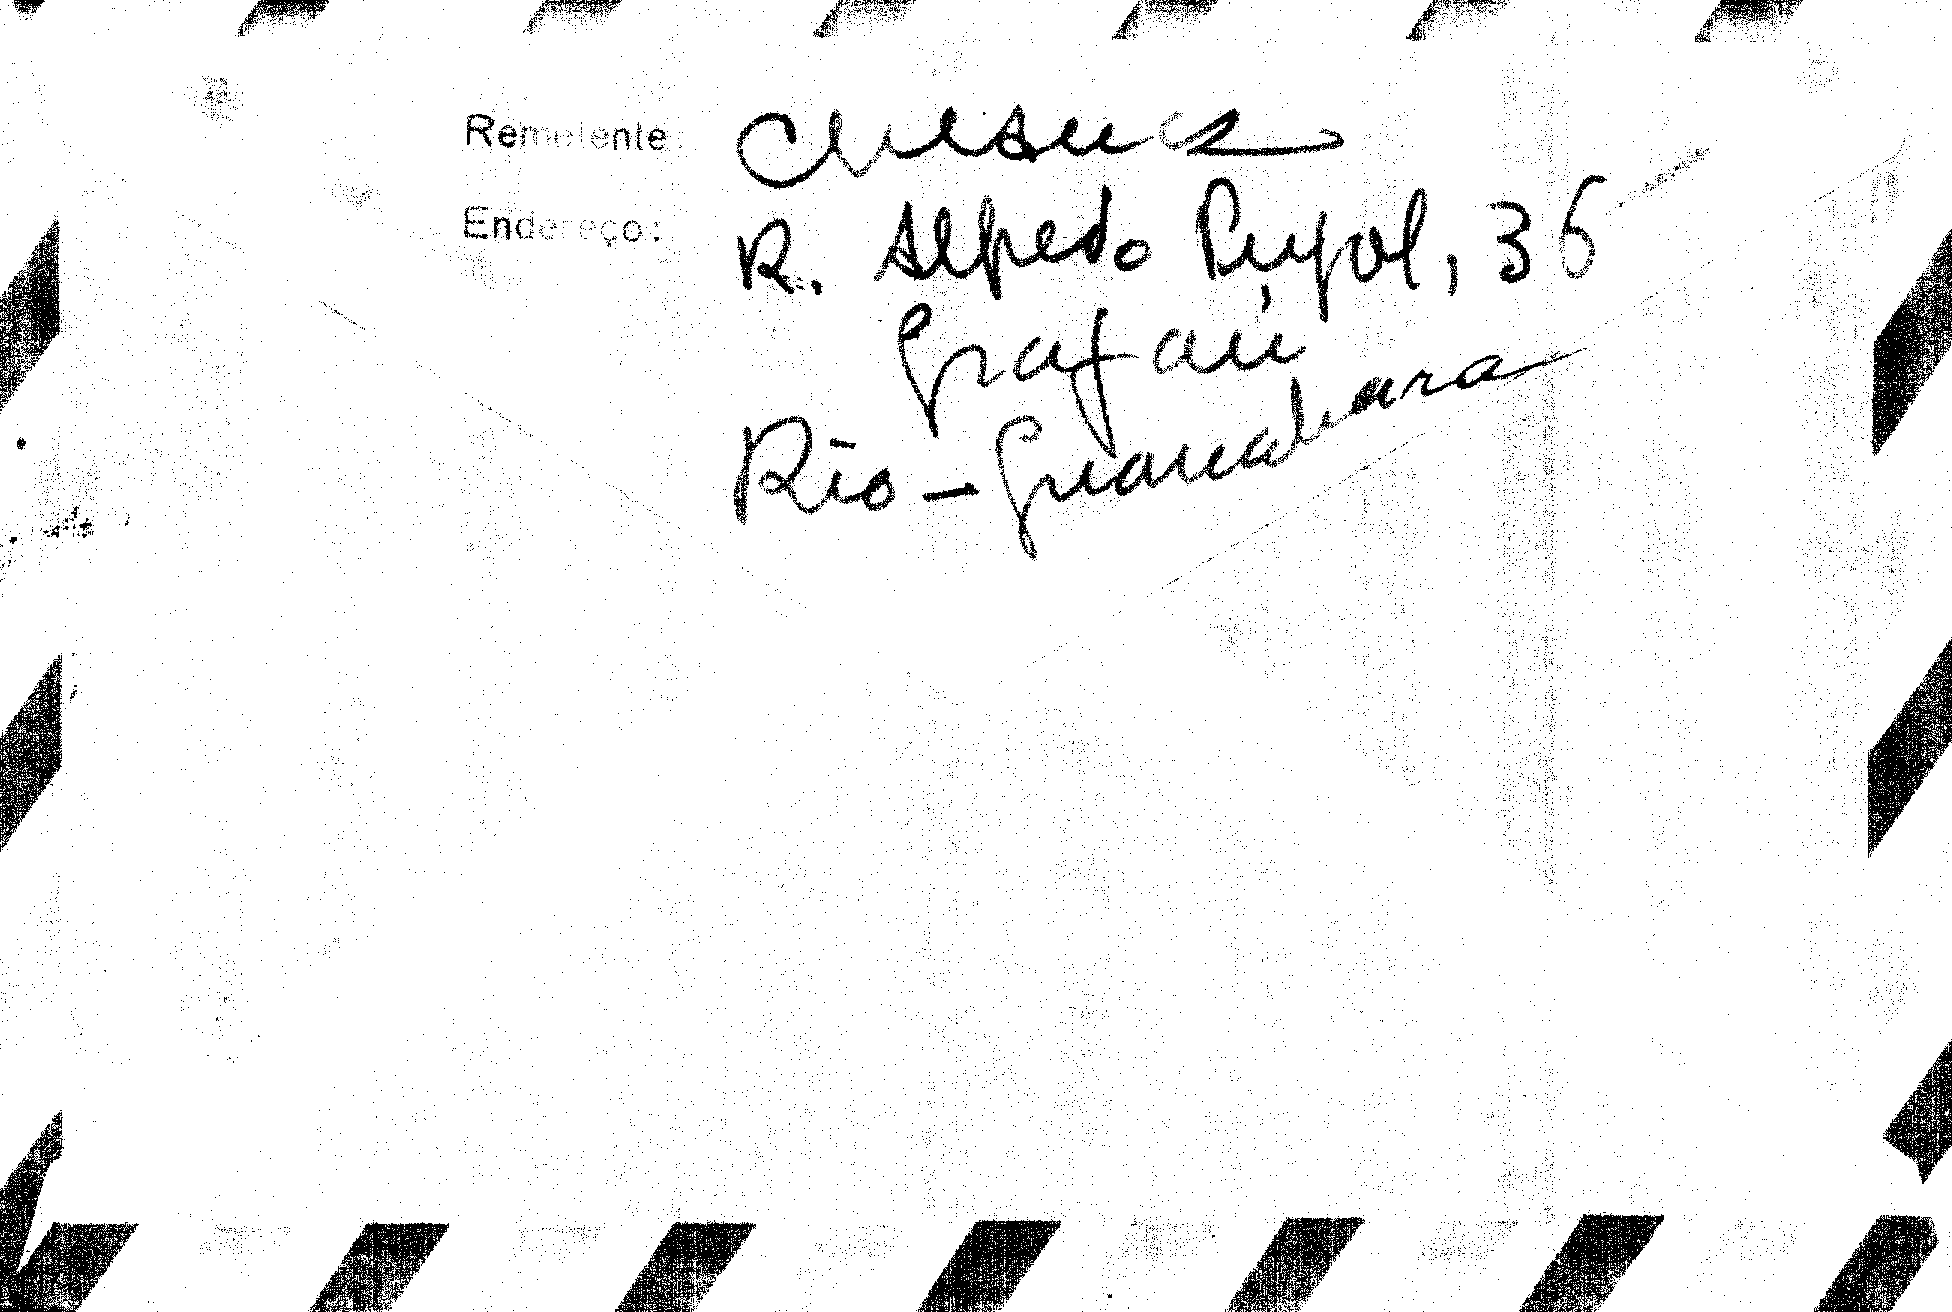 Remetente
Endereço: R. Alfredo Pujol, 36
Grajaú
Rio - Guanabara